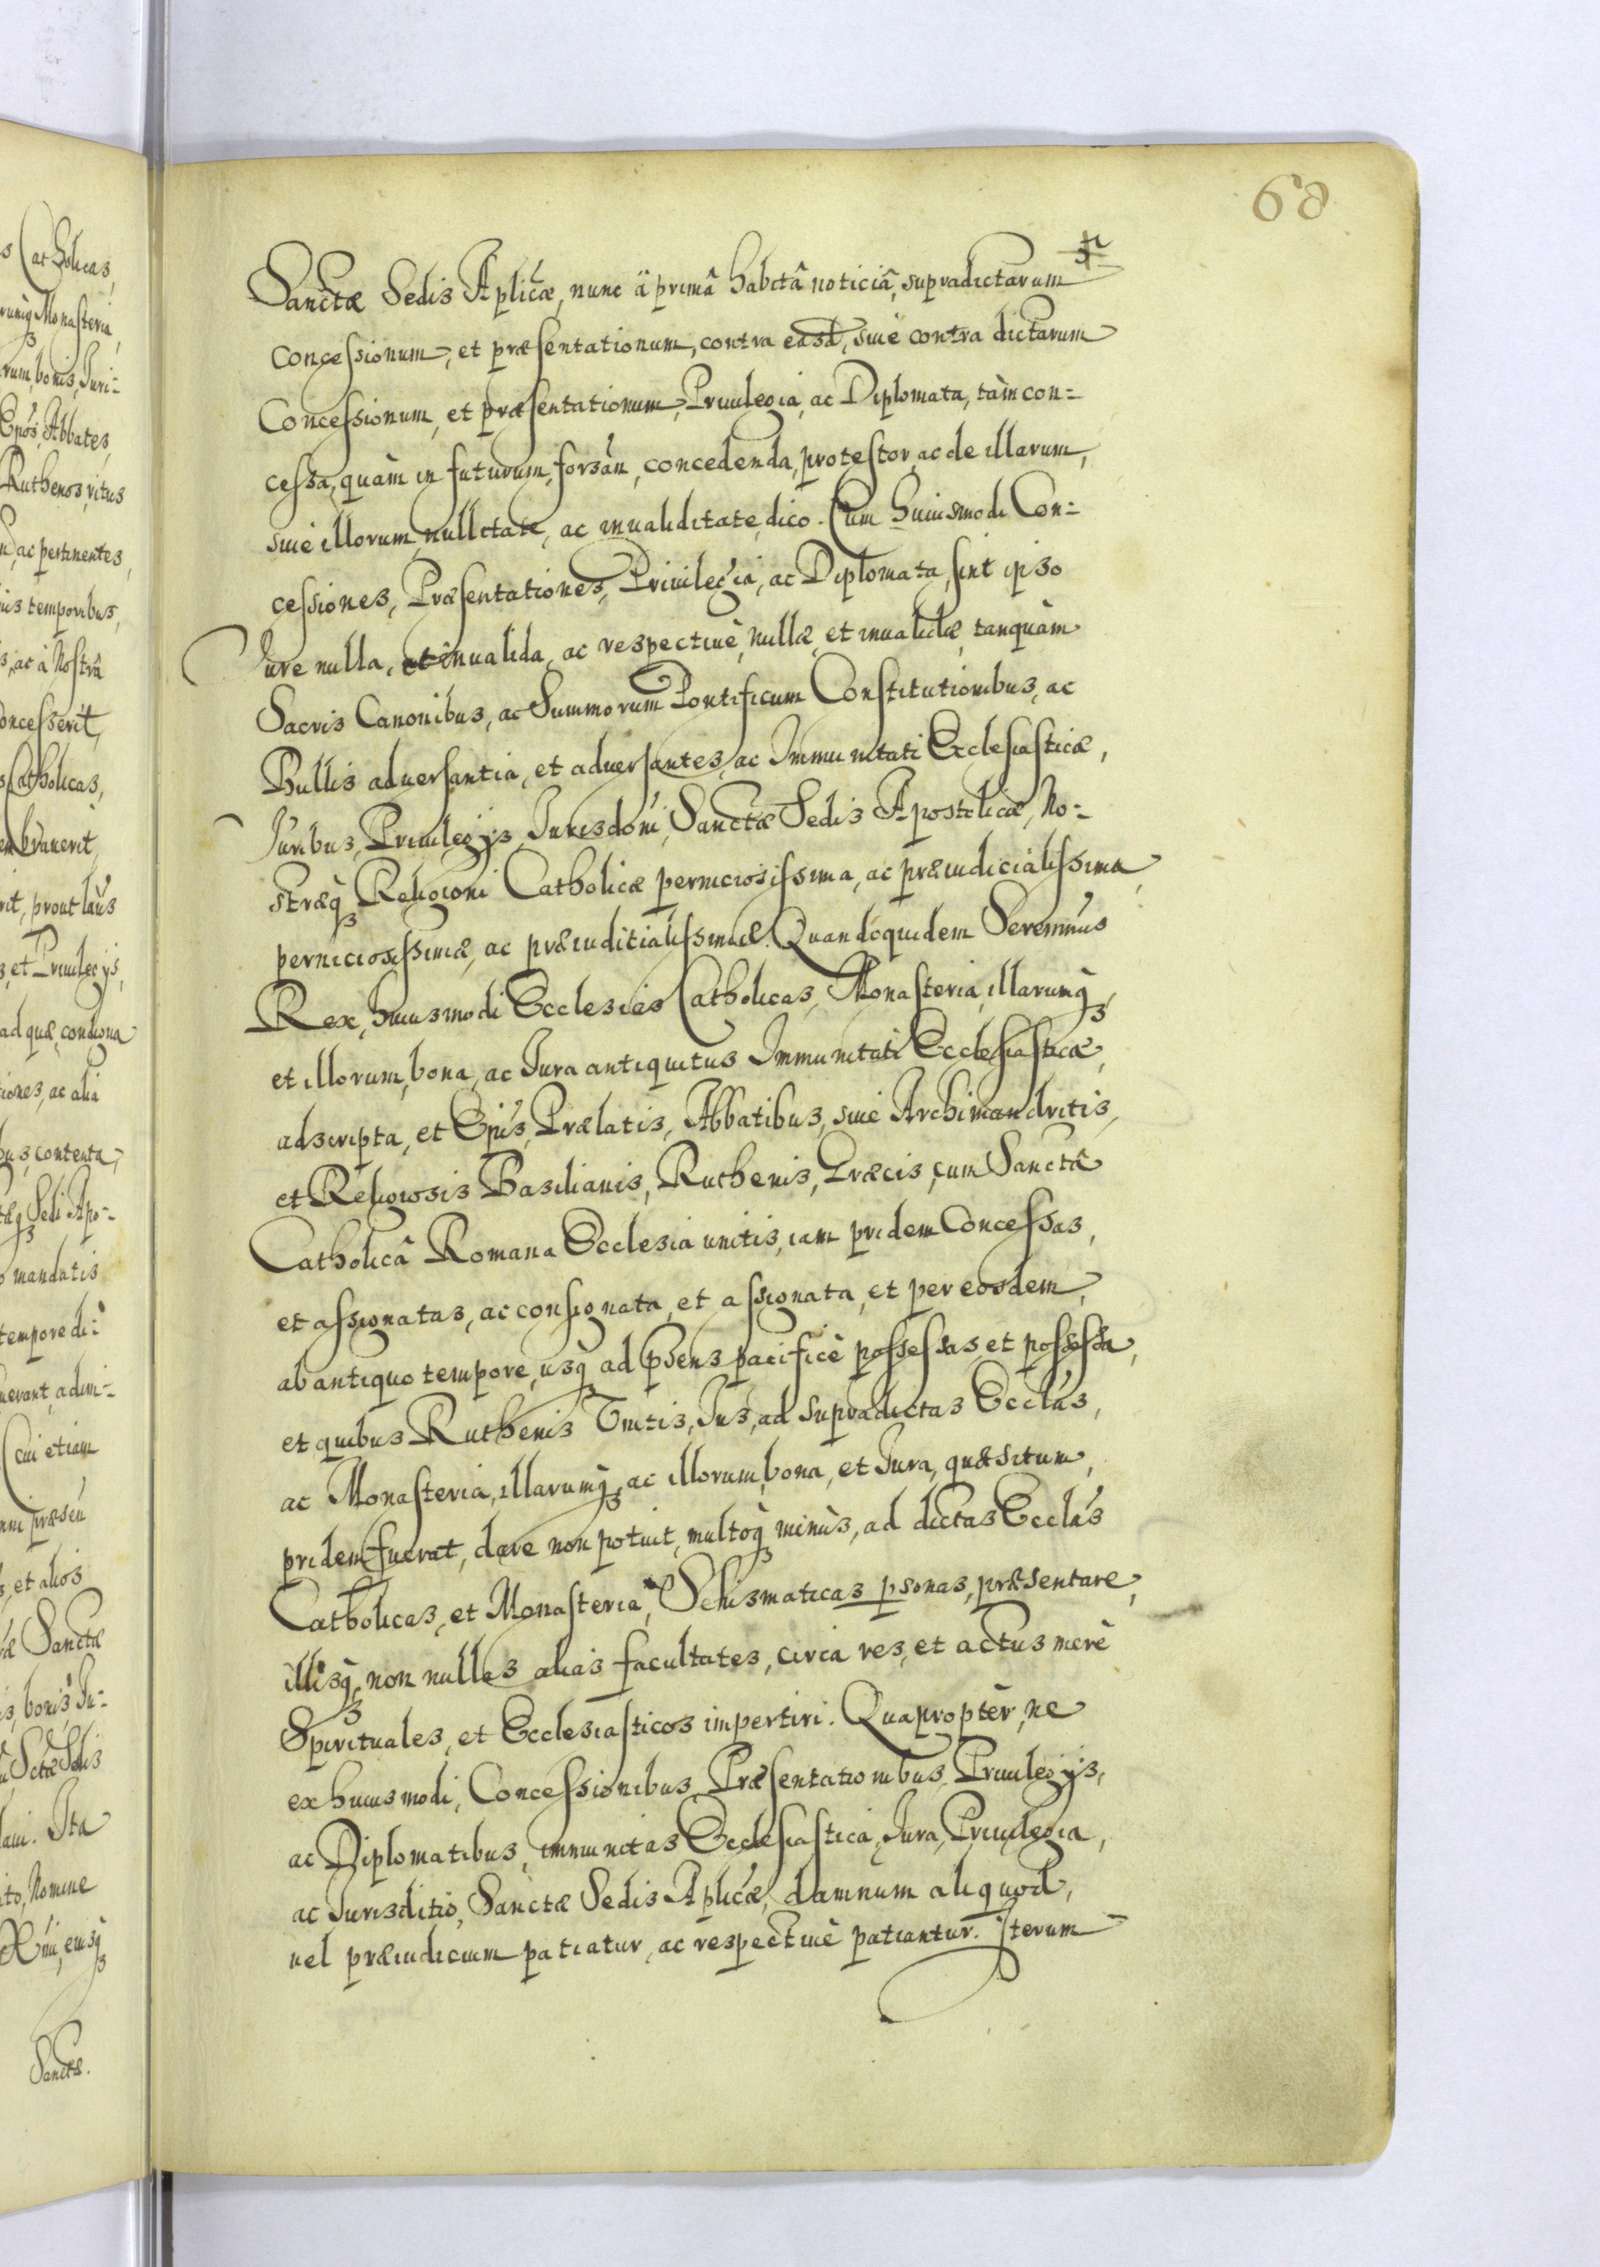 68
Sanctæ Sedis Aplicæ, nunc à primâ habitâ noticiâ, supradictarum
concessionum, et præsentationum, contra easd, siuè contra dictarum
Concessionum, et præsentationum, Priuilegia, ac Diplomata, tàm con=
cessa, quàm in futurum, forsàn, concedenda, protestor, ac de illarum,
siuè illorum, nullitate, ac inualiditate, dico. Cum huiusmodi Con=
cessiones, Præsentationes, Priuilegia, ac Diplomata, sint ipso
Iure nulla, et inualida, ac respectiuè, nullæ, et inualidæ, tanquàm
Sacris Canonibus, ac Summorum Pontificum Constitutionibus, ac
Bullis aduersantia, et aduersantes, ac Immunitati Ecclesiasticæ,
Iuribus, Priuilegijs, Iurisdoni, Sanctæ Sedis Apostolicæ, No=
stræq3 Religioni Catholicæ perniciosissima, ac præiudicialissima,
perniciosissimæ, ac præiuditialissimæ. Quandoquidem Seremus
Rex, huiusmodi Ecclesias Catholicas, Monasteria, illarumq3,
et illorum, bona, ac Iura antiquitus Immunitati Ecclesiasticæ,
adscripta, et Epis, Prælatis, Abbatibus, siuè Archimandritis,
et Religiosis Basilianis, Ruthenis, Græcis, cum Sanctâ
Catholicâ Romana Ecclesia unitis, iam pridem Concessas,
et assignatas, ac consignata, et assignata, et per eosdem,
ab antiquo tempore, usq3 ad psens pacificè possessas, et possessa,
et quibus Ruthenis Vnitis, Ius, ad supradictas Ecclas,
ac Monasteria, illarumq3, ac illorum, bona, et Iura, quæsitum,
pridem fuerat, dare non potuit, multoq3 minùs, ad dictas Ecclas
Catholicas, et Monasteria, Schismaticas psonas, præsentare,
illisq3, non nullas alias facultates, circa res, et actus merè
Spirituales, et Ecclesiasticos impertiri. Quaproptèr, ne
ex huiusmodi, Concessionibus, Præsentationibus, Priuilegijs,
ac Diplomatibus, immunitas Ecclesiastica, Iura, Priuilegia,
ac Iurisditio, Sanctæ Sedis Aplicæ, damnum aliquod,
uel præiudicium patiatur, ac respectiuè patiantur. Iterum